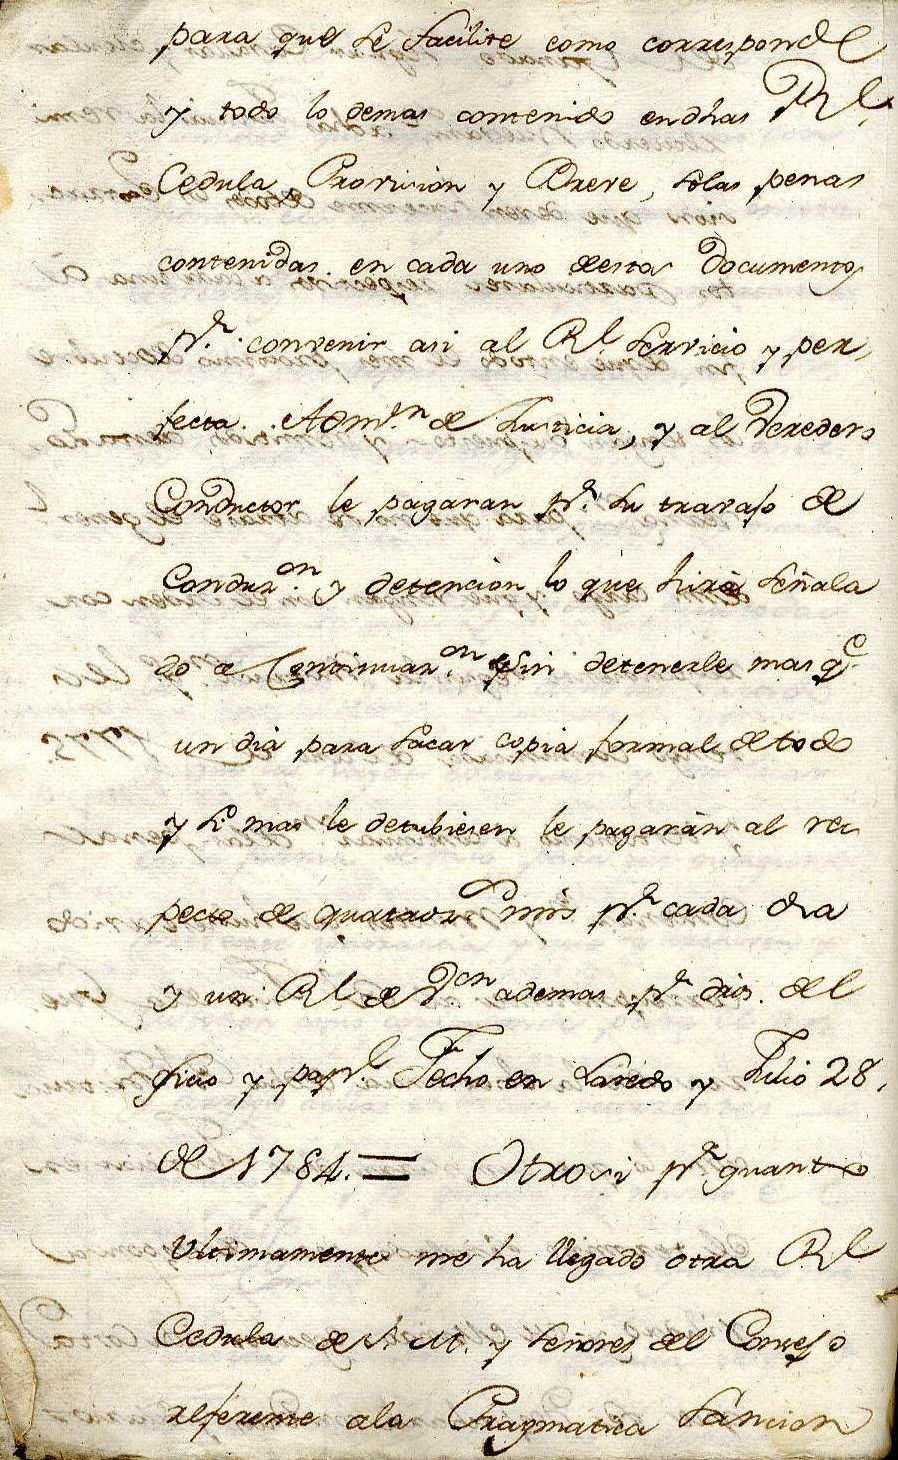 para que se facilite como corresponde
y todo lo demas contenido en dhas Rl.
Cedula, Provision y Breve, so las penas
contenidas en cada uno de estos Documentos
pr. convenir asi al Rl. servicio y per-
fecta Admn. de Justicia, y al Veredero
Conductor le pagaran pr. su travajo de
Conduzon. y detencion lo que hirà señala
do a Continuazon. sin detenerle mas qe.
un dia para sacar copia formal de todo
y si mas le detubiesen le pagaràn al res
pecto de quatrozs. mrs pr. cada dia
y un Rl. de Von ademas pr. dros. del
ficio y papl. Fecho en Laredo y Julio 28,
de 1784. = Otrosi pr. quanto
Ultimamente me ha llegado otra Rl
Cedula de S. M. y señores del Consejo
referente a la Pragmatica Sancion